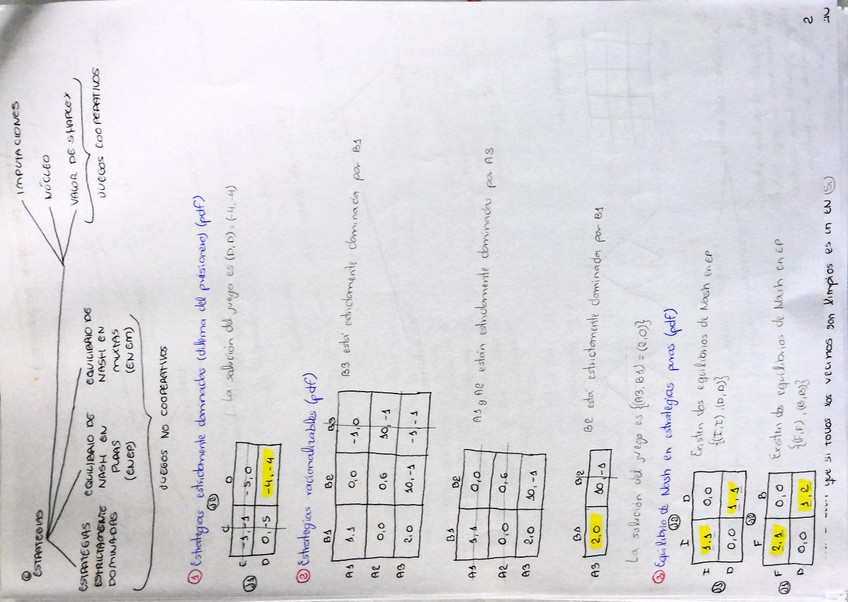 © ESTRATEGIAS
ESTRATEGIAS ESTRICTAMENTE DOMINADAS
EQUILIBRIO DE NASH EN PURAS (EN EP)
EQUILIBRIO DE NASH EN MIXTAS (EN EM)
JUEGOS NO COOPERATIVOS
IMPUTACIONES
NÚCLEO
VALOR DE SHAPLEY
JUEGOS COOPERATIVOS
① Estrategias estrictamente dominadas (dilema del prisionero) (pdf)
C D
C -1,-1 -5,0
D 0,-5 -4,-4
La solución del juego es (D,D) = (-4,-4)
② Estrategias racionalizables (pdf)
B1 B2 B3
A1 1,1 0,0 -1,0
A2 0,0 0,6 10,-1
A3 2,0 10,-1 -1,-1
B3 está estrictamente dominada por B1
B1 B2
A1 1,1 0,0
A2 0,0 0,6
A3 2,0 10,-1
A1 y A2 están estrictamente dominadas por A3
B1 B2
A3 2,0 10,-1
B2 está estrictamente dominada por B1
La solución del juego es {(A3,B1) = (2,0)}
③ Equilibrio de Nash en estrategias puras (pdf)
J2
I D
J1 I 1,1 0,0
D 0,0 1,1
Existen dos equilibrios de Nash en EP
{(I,I),(D,D)}
J2
F B
J1 F 2,1 0,0
B 0,0 1,2
Existen dos equilibrios de Nash en EP
{(F,F),(B,B)}
que si todos los vecinos son limpios es un EN (Sí)
2